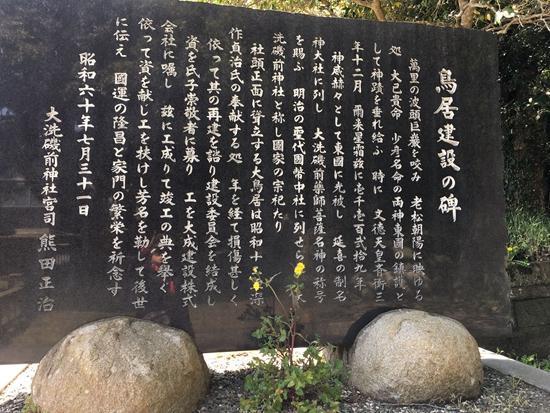 鳥居建設の碑
萬里の波頭巨巌を咬み 老松朝陽に映ゆる
処 大己貴命 少彦名命の両神東國の鎮護と
して神蹟を垂れ給ふ 時に 文徳天皇斉衡三
年十二月 爾来星霜茲に壱千壱百弐拾九年
神威赫々として東國に光被し 延喜の制名
神大社に列し 大洗磯前薬師菩薩名神の称号
を賜ふ 明治の聖代國幣中社に列せら
洗磯前神社と称し國家の宗祀たり
社頭正面に聳立する大鳥居は昭和十 深
作貞治氏の奉献する処 年を経て損傷甚しく
依って其の再建を諮り建設委員会を結成し
資を氏子崇敬者に募り 工を大成建設株式
会社に嘱し 茲に工成りて竣工の典を挙ぐ
依って資を献じ工を扶けし芳名を勒して後世
に伝え 國運の隆昌と家門の繁栄を祈念す
昭和六十年七月三十一日
大洗磯前神社宮司 熊田正治